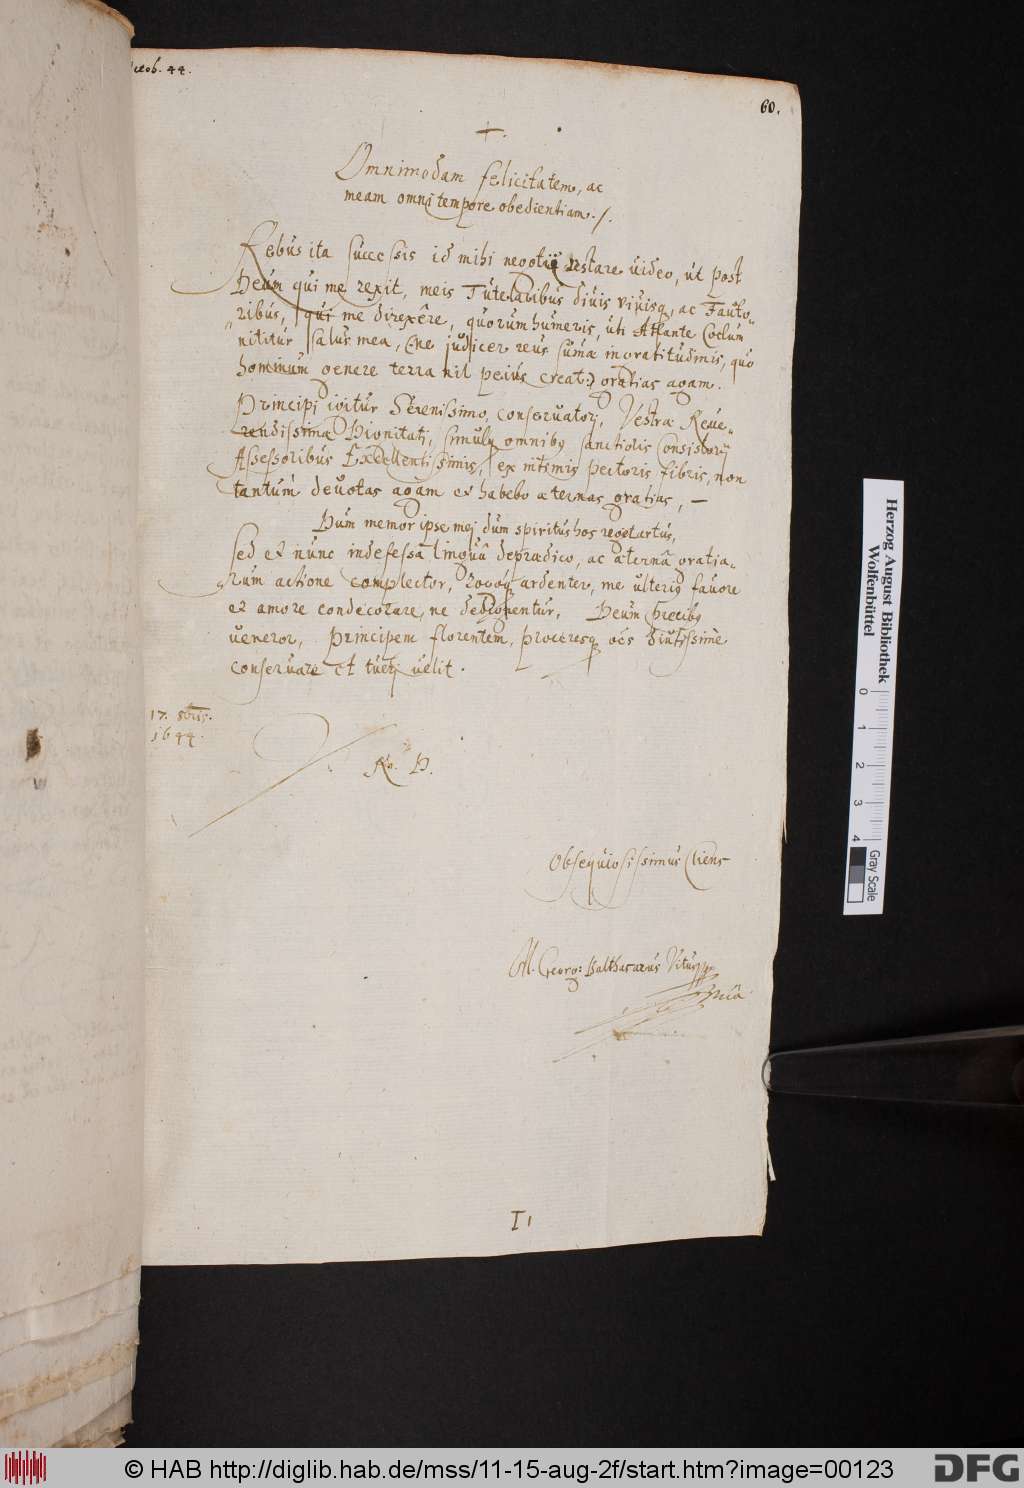 ctob. 44.
60.
+.
Omnimodam felicitatem, ac
meam omni tempore obedientiam ./.
Rebus ita successis id mihi negotij restare video, ut post
Deum qui me rexit, meis Tutelaribus divis viuisq, ac Fauto-
ribus, qui me direxêre, quorum humeris, uti Atlante Coelum
nititur salus mea, (ne judicer reus sum̄æ ingratitudinis, quo
hominum genere terra nil peius creat:) gratias agam.
Principi igitur Serenissimo, conservatori, Vestræ Reve-
rendissimæ Dignitati, simulq omnibq sanctioris Consistorij
Assessoribus Excellentissimis, ex intimis pectoris fibris, non
tantum devotas agam et habebo æternas gratias, —
Dum memor ipse mei dum spiritus hos regit artus,
sed et nunc indefessâ linguâ deprædico, ac æternâ gratia-
rum actione complector, rogoq ardenter, me ulteriq favore
et amore condecorare, ne dedignentur, Deum precibq
veneror, Principem florentem, proceresq oēs diutissimè
conservare et tueri velit.
17. 8bris.
1644.
Rv. D.
Obsequiosissimus Cliens
M. Georg: Balthasarus Vitus
I1
Herzog August Bibliothek
Wolfenbüttel
0 1 2 3 4
Gray Scale
© HAB http://diglib.hab.de/mss/11-15-aug-2f/start.htm?image=00123
DFG